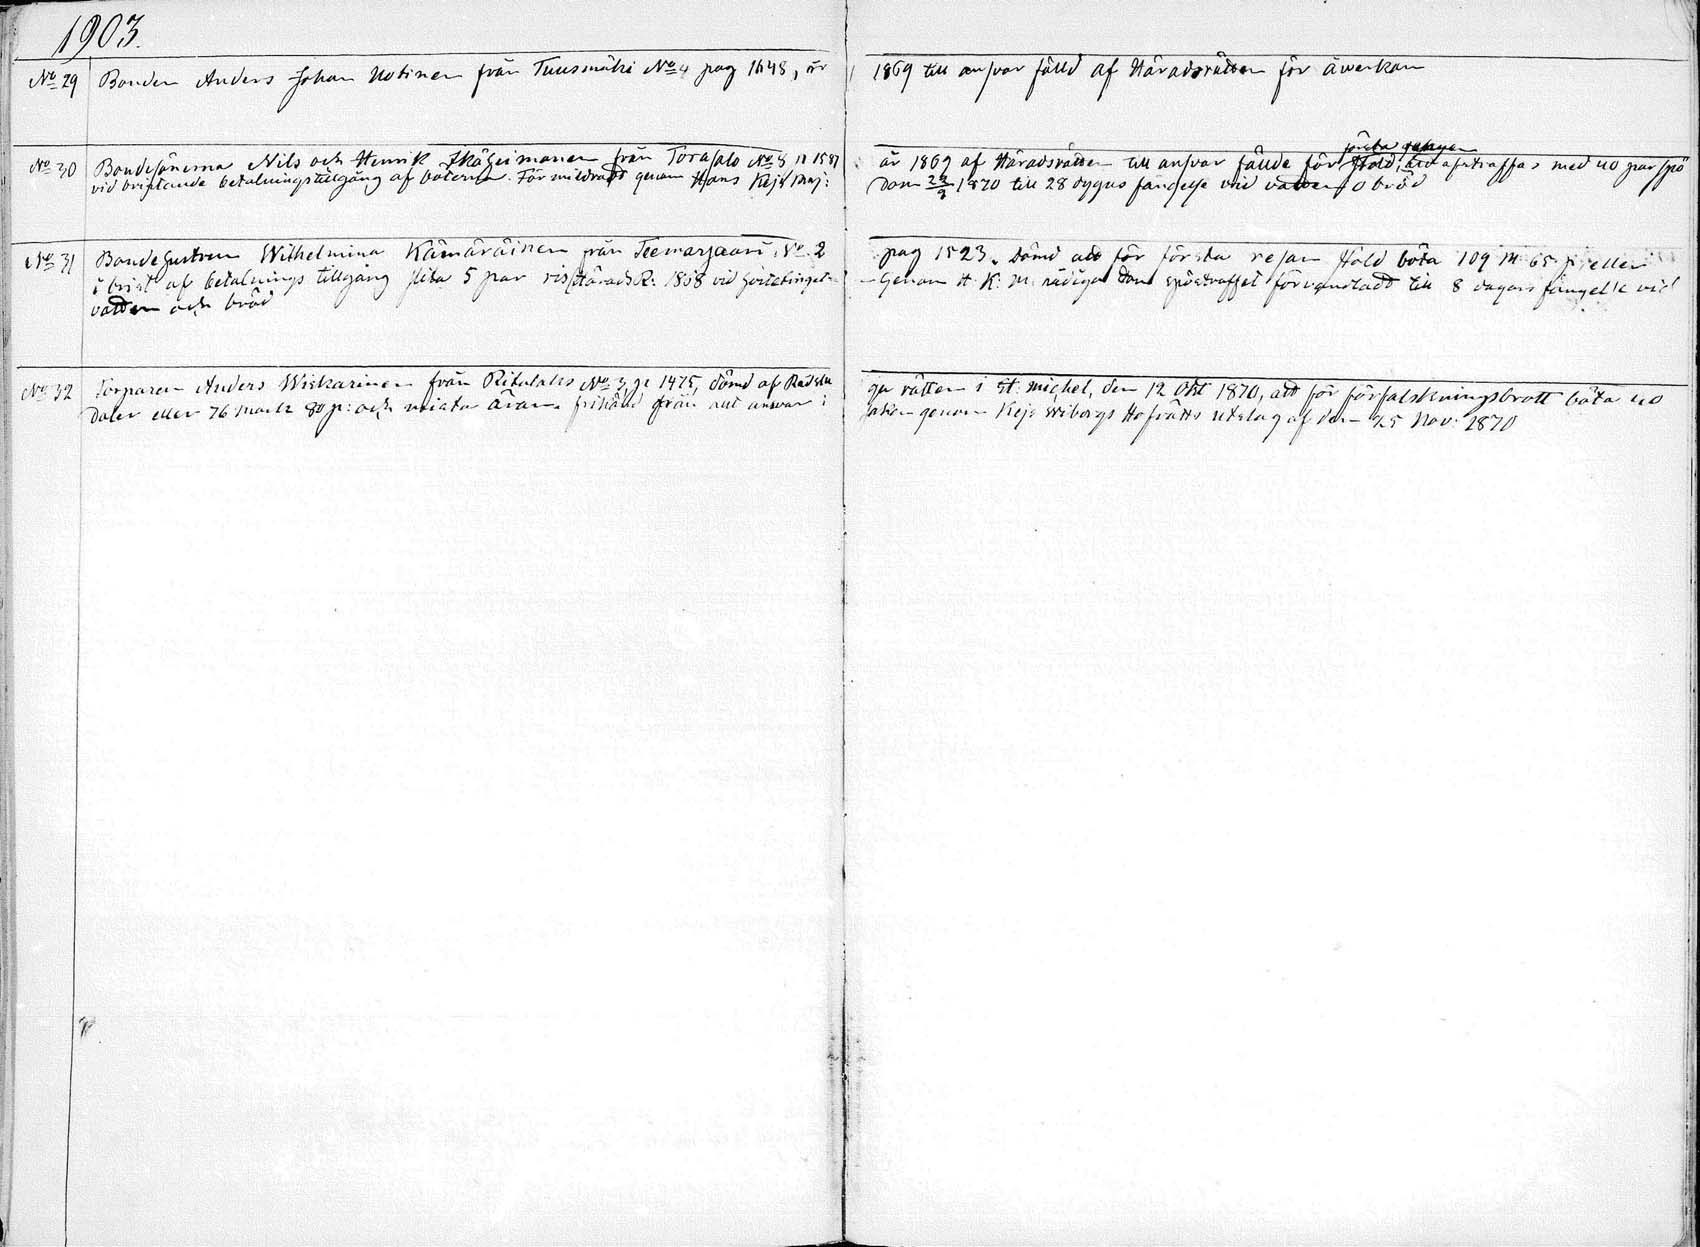 1903.
No 29 Bonden Anders Johan Notinen från Tuusmäki No 4 pag 1648, är 1869 till ansvar fälld af Häradsrätten för åwerkan
första gången
No 30 Bondesönerna Nils och Henrik Ikäheimonen från Torasalo No 8 p 1587 år 1869 af Häradsrätten till ansvar fällde för stöld, att afstraffas med 40 par spö
vid bristande betalningstillgång af böterna. Förmildradt genom Hans Kejs Maj: Dom 1870 till 28 dygns fängelse vid vatten o bröd
No 31 Bondehustrun Wilhelmina Kämäräinen från Teemasaari No 2 pag 1523. Dömd att för första resan stöld böta 109 M 65 p eller
i brist af betalnings tillgång slita 5 par ris Härads R. 1868 vid tinget Genom H. K. M. nådiga dom spöstraffet förvandladt till 8 dagars fängelse vid
vatten och bröd
No 32 Torparen Anders Wiskarinen från Ritulaks No 3, p 1475, dömd af Rådstu ga rätten i St. Michel, den 12 Okt 1870, att för förfalskningsbrott böta 40
Daler eller 76 mark 80 p: och mista äran. frikänd från allt answar i saken genom Kejs Wiborgs Hofrätts utslag af den 25 Nov: 1870